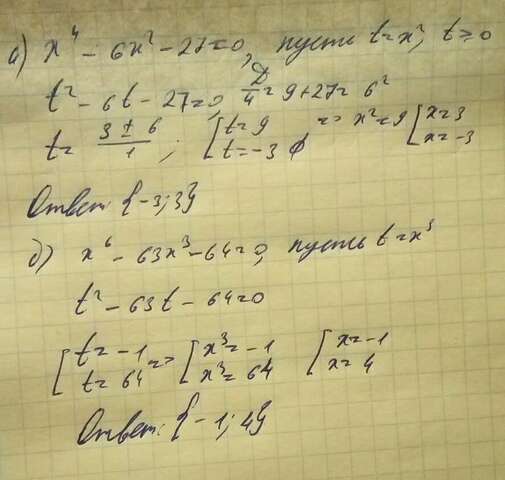 а) x⁴ - 6x² - 27 = 0, пусть t = x², t ≥ 0
t² - 6t - 27 = 0, D/4 = 9 + 27 = 6²
t = (3 ± 6)/1 ; [t = 9 t = -3 ∅ => x² = 9 [x = 3 x = -3
Ответ: {-3; 3}
б) x⁶ - 63x³ - 64 = 0, пусть t = x³
t² - 63t - 64 = 0
[t = -1 t = 64 => [x³ = -1 x³ = 64 [x = -1 x = 4
Ответ: {-1; 4}